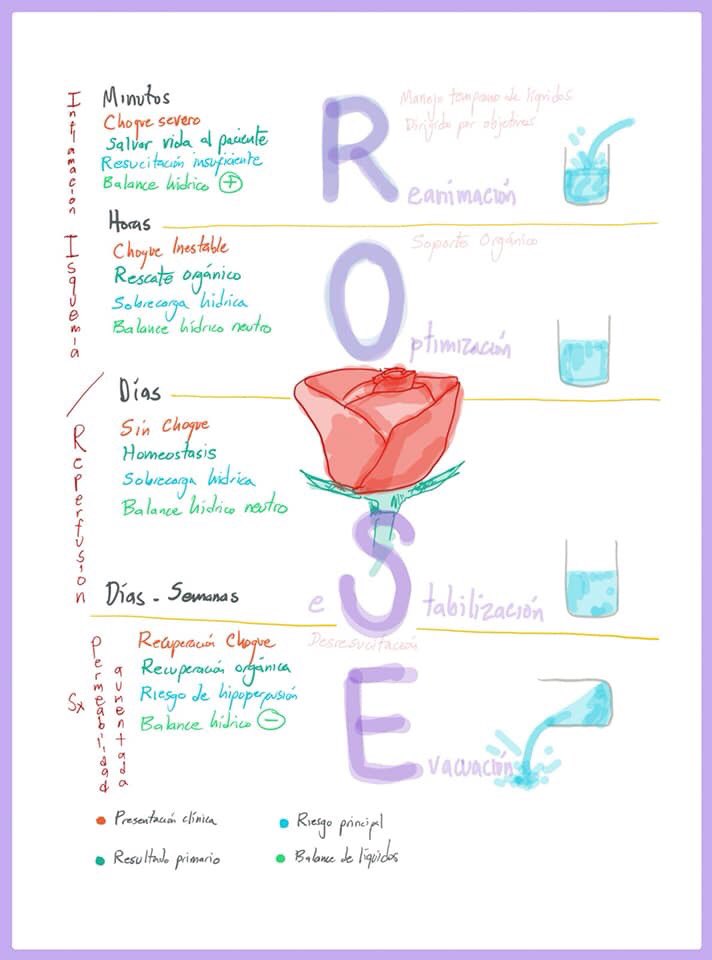 Inflamación
Minutos
Choque severo
Salvar vida al paciente
Resucitación insuficiente
Balance hídrico +
R
eanimación
Manejo temprano de líquidos
Dirigida por objetivos
Isquemia
Horas
Choque Inestable
Rescate orgánico
Sobrecarga hídrica
Balance hídrico neutro
O
ptimización
Soporte Orgánico
/
Reperfusión
Días
Sin Choque
Homeostasis
Sobrecarga hídrica
Balance hídrico neutro
e S tabilización
Días - Semanas
Sx Permeabilidad aumentada
Recuperación Choque
Recuperación orgánica
Riesgo de hipoperfusión
Balance hídrico -
Desresucitación
E
vacuación
Presentación clínica
Riesgo principal
Resultado primario
Balance de líquidos